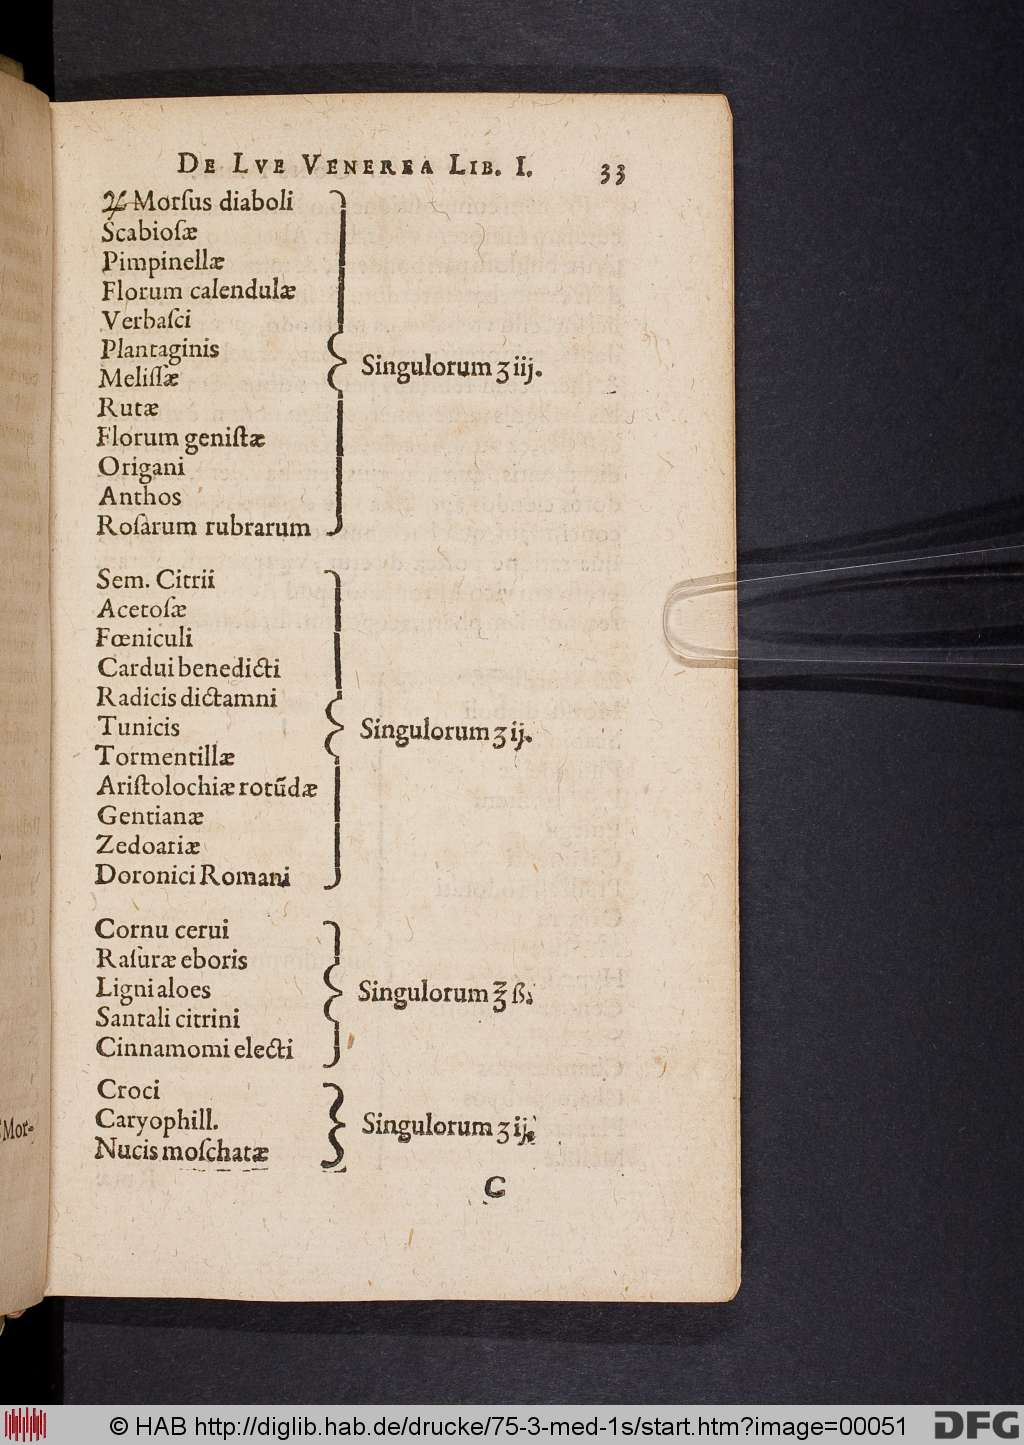 DE LVE VENEREA LIB. I. 33
♃ Morſus diaboli
Scabioſæ
Pimpinellæ
Florum calendulæ
Verbaſci
Plantaginis
Meliſſæ
Singulorum ʒ iij.
Rutæ
Florum geniſtæ
Origani
Anthos
Roſarum rubrarum
Sem. Citrii
Acetoſæ
Fœniculi
Cardui benedicti
Radicis dictamni
Tunicis
Singulorum ʒ ij.
Tormentillæ
Ariſtolochiæ rotūdæ
Gentianæ
Zedoariæ
Doronici Romani
Cornu cerui
Raſuræ eboris
Ligni aloes
Singulorum ℥ ß.
Santali citrini
Cinnamomi electi
Croci
Caryophill.
Singulorum ʒ ij.
Nucis moſchatæ
C
Mor-
© HAB http://diglib.hab.de/drucke/75-3-med-1s/start.htm?image=00051
DFG